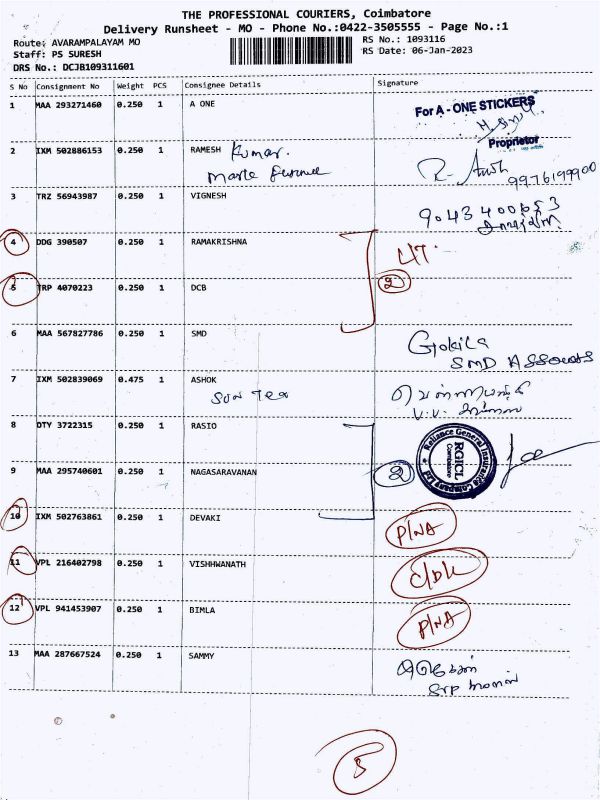 THE PROFESSIONAL COURIERS, Coimbatore
Delivery Runsheet - MO - Phone No.:0422-3505555 - Page No.:1
Route: AVARAMPALAYAM MO
RS No.: 1093116
Staff: PS SURESH
RS Date: 06-Jan-2023
DRS No.: DCJB109311601
S No Consignment No Weight PCS Consignee Details Signature
1 MAA 293271460 0.250 1 A ONE
For A - ONE STICKERS
Proprietor
2 IXM 502886153 0.250 1 RAMESH Kumar.
9976199900
3 TRZ 56943987 0.250 1 VIGNESH
9043400653
4 DDG 390507 0.250 1 RAMAKRISHNA
5 TRP 4070223 0.250 1 DCB
2
6 MAA 567827786 0.250 1 SMD
Gokila
SMD
7 IXM 502839069 0.475 1 ASHOK
8 DTY 3722315 0.250 1 RASIO
Reliance General Insurance Company
RGICL
Coimbatore
9 MAA 295740601 0.250 1 NAGASARAVANAN
2
10 IXM 502763861 0.250 1 DEVAKI
P/NA
11 VPL 216402798 0.250 1 VISHHWANATH
C/DK
12 VPL 941453907 0.250 1 BIMLA
P/NA
13 MAA 287667524 0.250 1 SAMMY
5